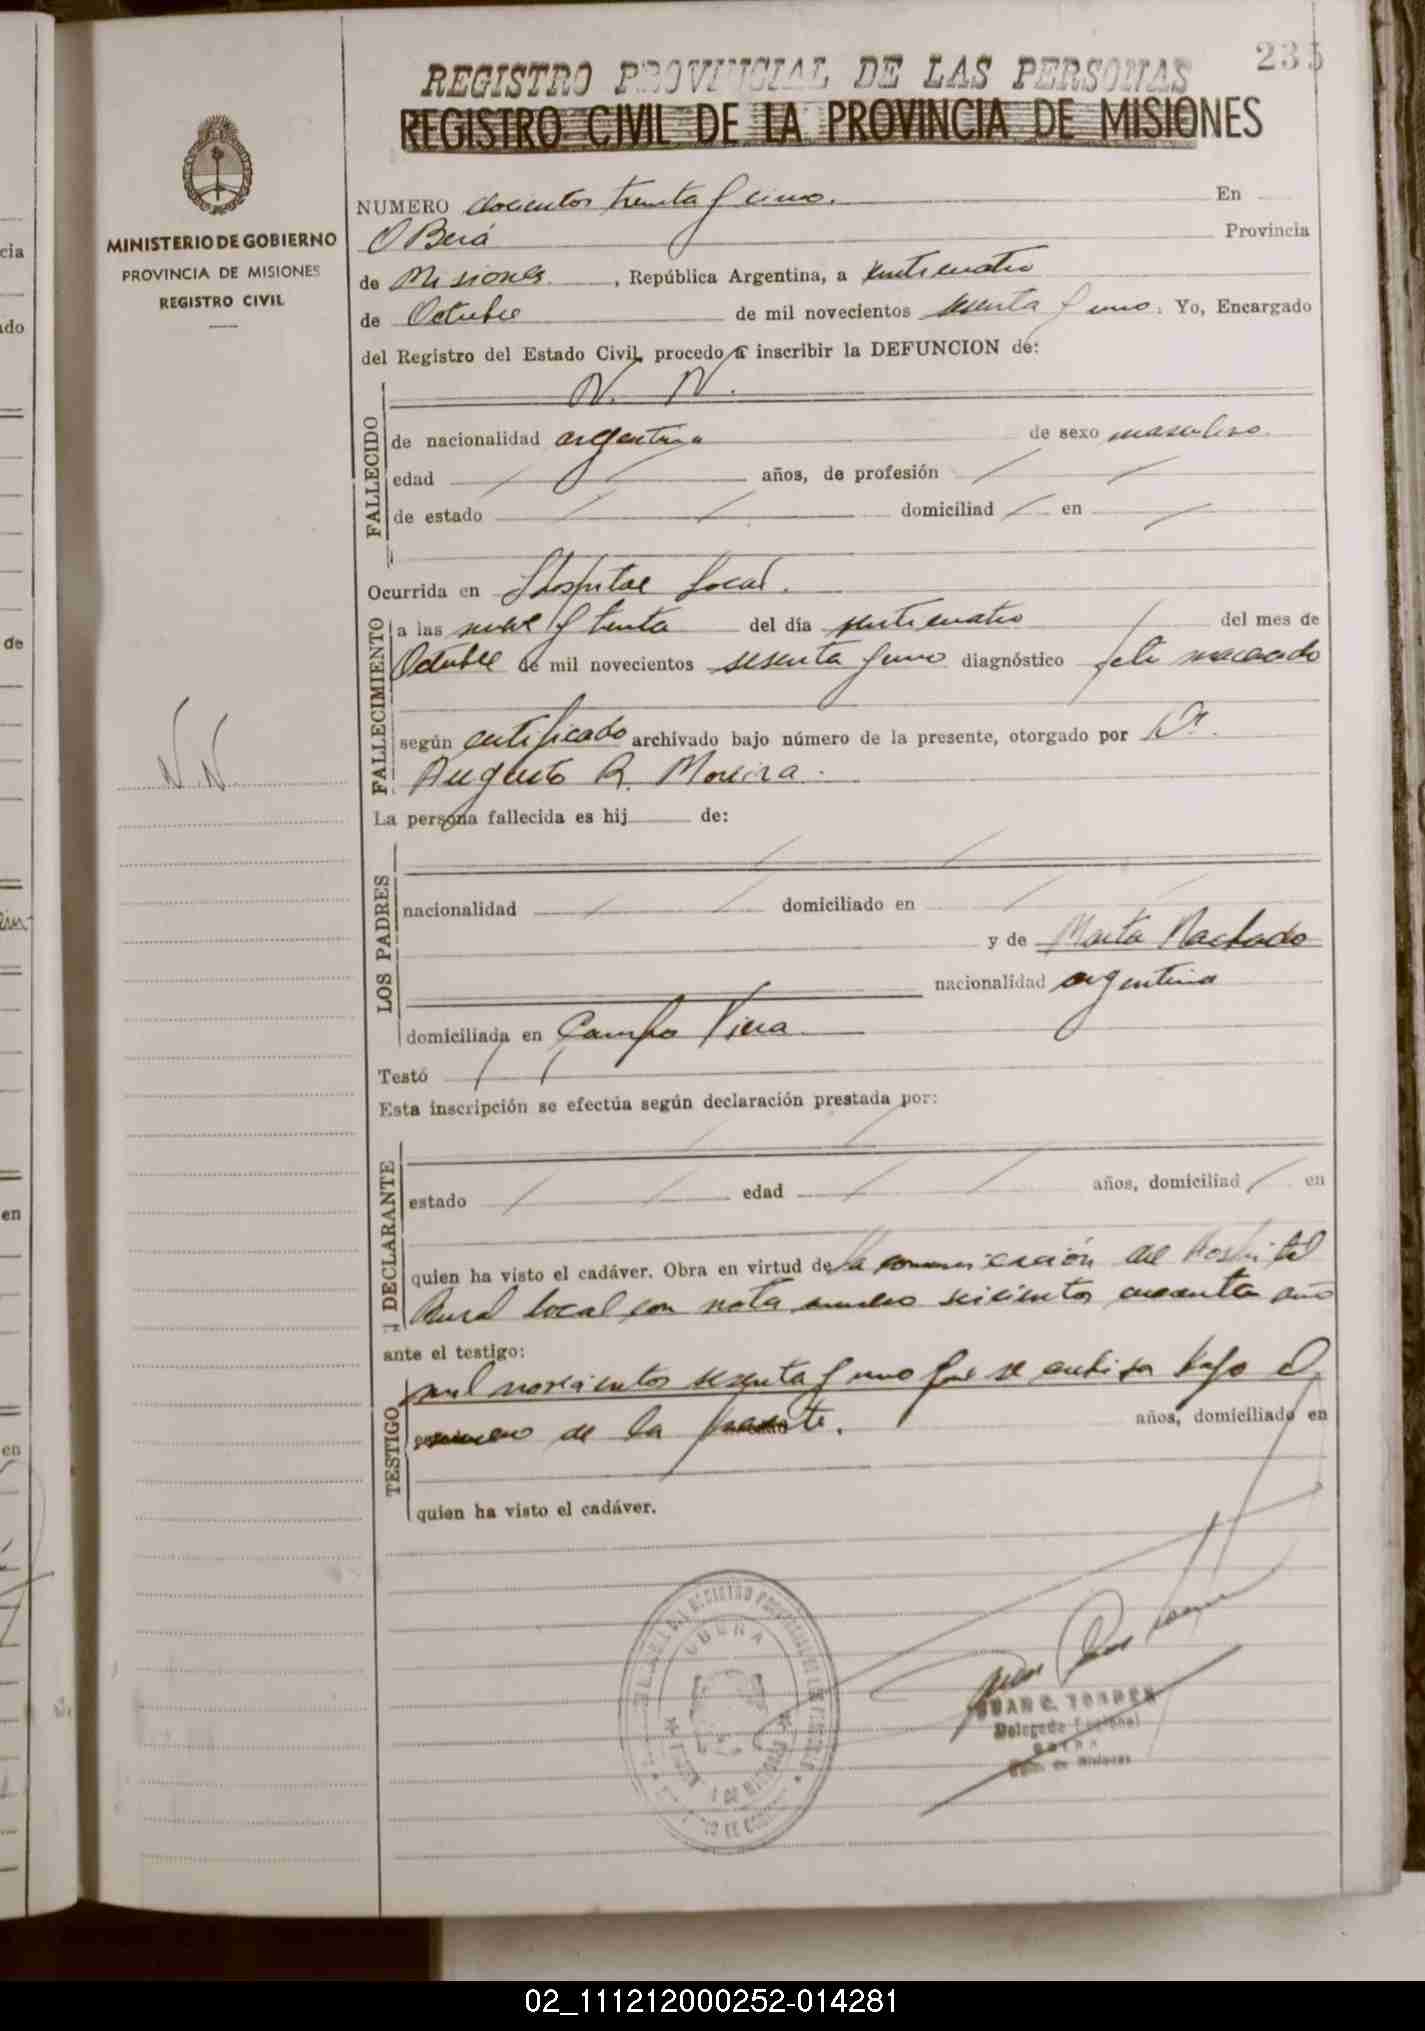 235
REGISTRO PROVINCIAL DE LAS PERSONAS
REGISTRO CIVIL DE LA PROVINCIA DE MISIONES
MINISTERIO DE GOBIERNO
PROVINCIA DE MISIONES
REGISTRO CIVIL
N.N
NUMERO docientos treinta y cinco. En
OBerá Provincia
de Misiones , República Argentina, a veinticuatro
de Octubre de mil novecientos sesenta y uno. Yo, Encargado
del Registro del Estado Civil, procedo a inscribir la DEFUNCION de:
N. N.
FALLECIDO
de nacionalidad argentina de sexo masculino
edad años, de profesión
de estado domiciliad en
Ocurrida en Hospital local.
FALLECIMIENTO
a las nueve y treinta del día veinticuatro del mes de
Octubre de mil novecientos sesenta y uno diagnóstico feto macerado
según certificado archivado bajo número de la presente, otorgado por Dr.
Augusto R. Moreira.
La persona fallecida es hij de:
LOS PADRES
nacionalidad domiciliado en
y de Marta Machado
nacionalidad argentina
domiciliada en Campo Viera
Testó
Esta inscripción se efectúa según declaración prestada por:
DECLARANTE
estado edad años, domiciliad en
quien ha visto el cadáver. Obra en virtud de la comunicación del Hospital
Rural local con nota numero seicientos cuarenta año
ante el testigo:
mil novecientos sesenta y uno que se archiva bajo el
TESTIGO
numero de la presente. años, domiciliado en
quien ha visto el cadáver.
OBERA
JUAN C. TORRES
Delegado
de Misiones
02_111212000252-014281